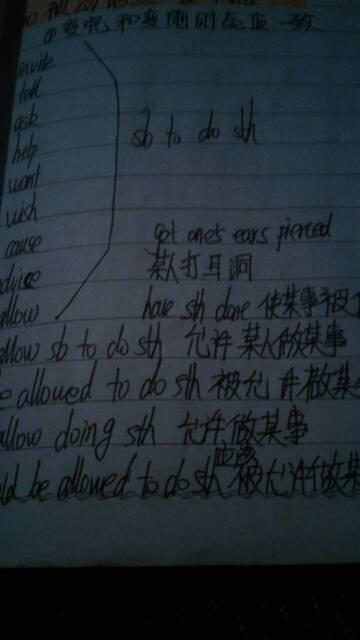 ①变宾和变时态应一致
invite
tell
ask
help
want
wish
cause
advice
allow
sb to do sth
get one's ears pierced
某人打耳洞
have sth done 使某事被
allow sb to do sth 允许某人做某事
e allowed to do sth 被允许做某
allow doing sth 允许做某事
应该
ld be allowed to do sth 被允许做某